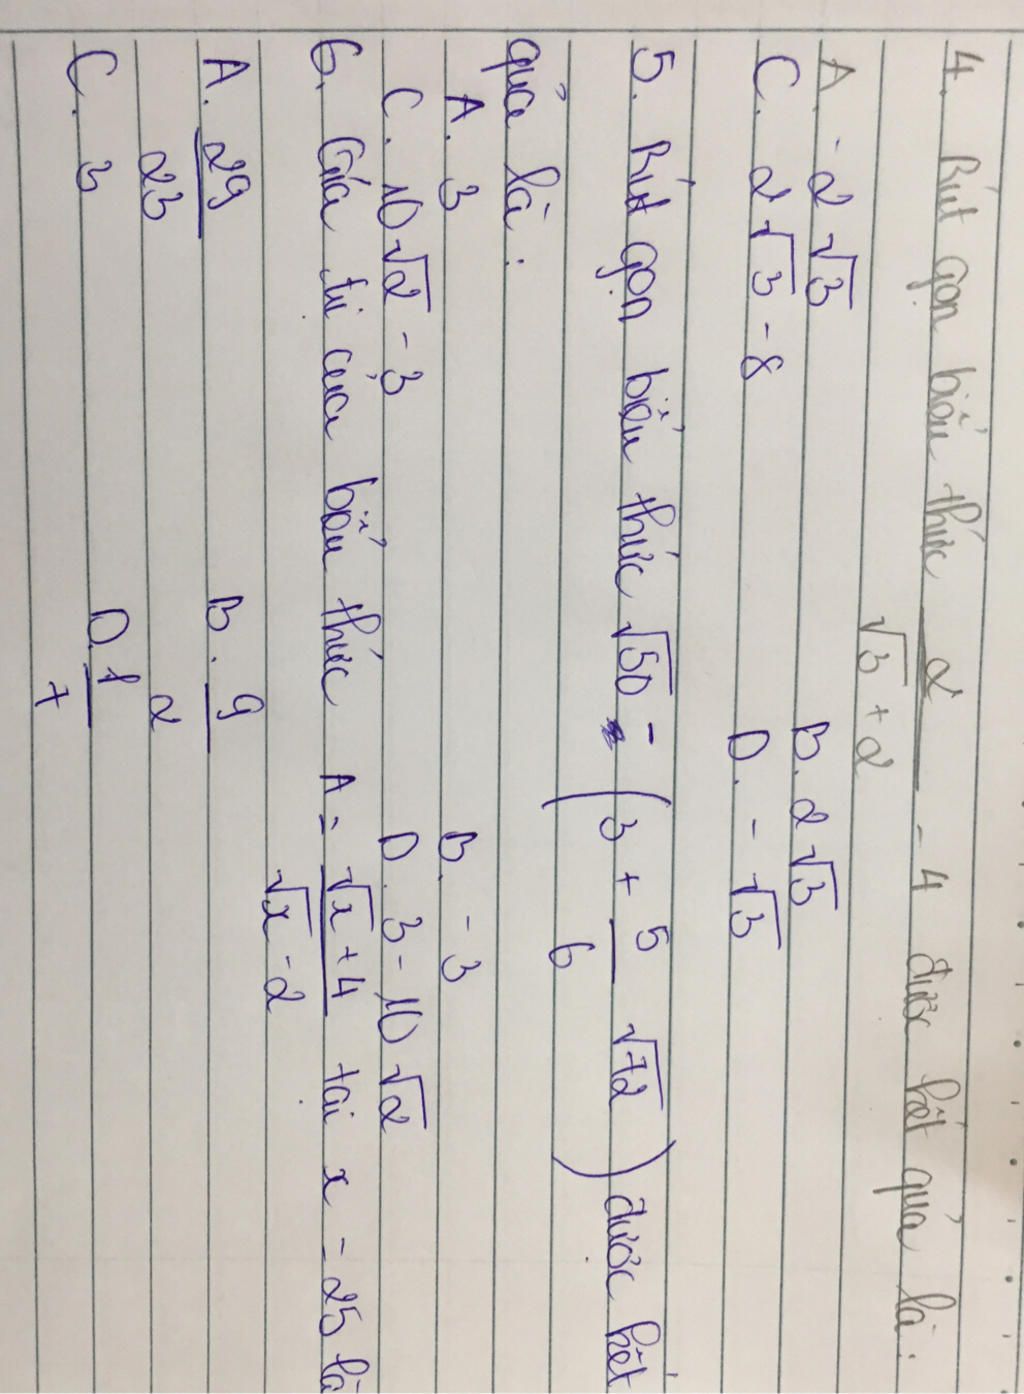 4. Rút gọn biểu thức 2/(√3 + 2) - 4 được kết quả là:
A. -2√3 B. 2√3
C. 2√3 - 8 D. -√3
5. Rút gọn biểu thức √50 - (3 + 5/6 √72) được kết
quả là:
A. 3 B. -3
C. 10√2 - 3 D. 3 - 10√2
6. Giá trị của biểu thức A = (√x + 4)/(√x - 2) tại x = 25 là
A. 29/23 B. 9/2
C. 3 D. 1/7